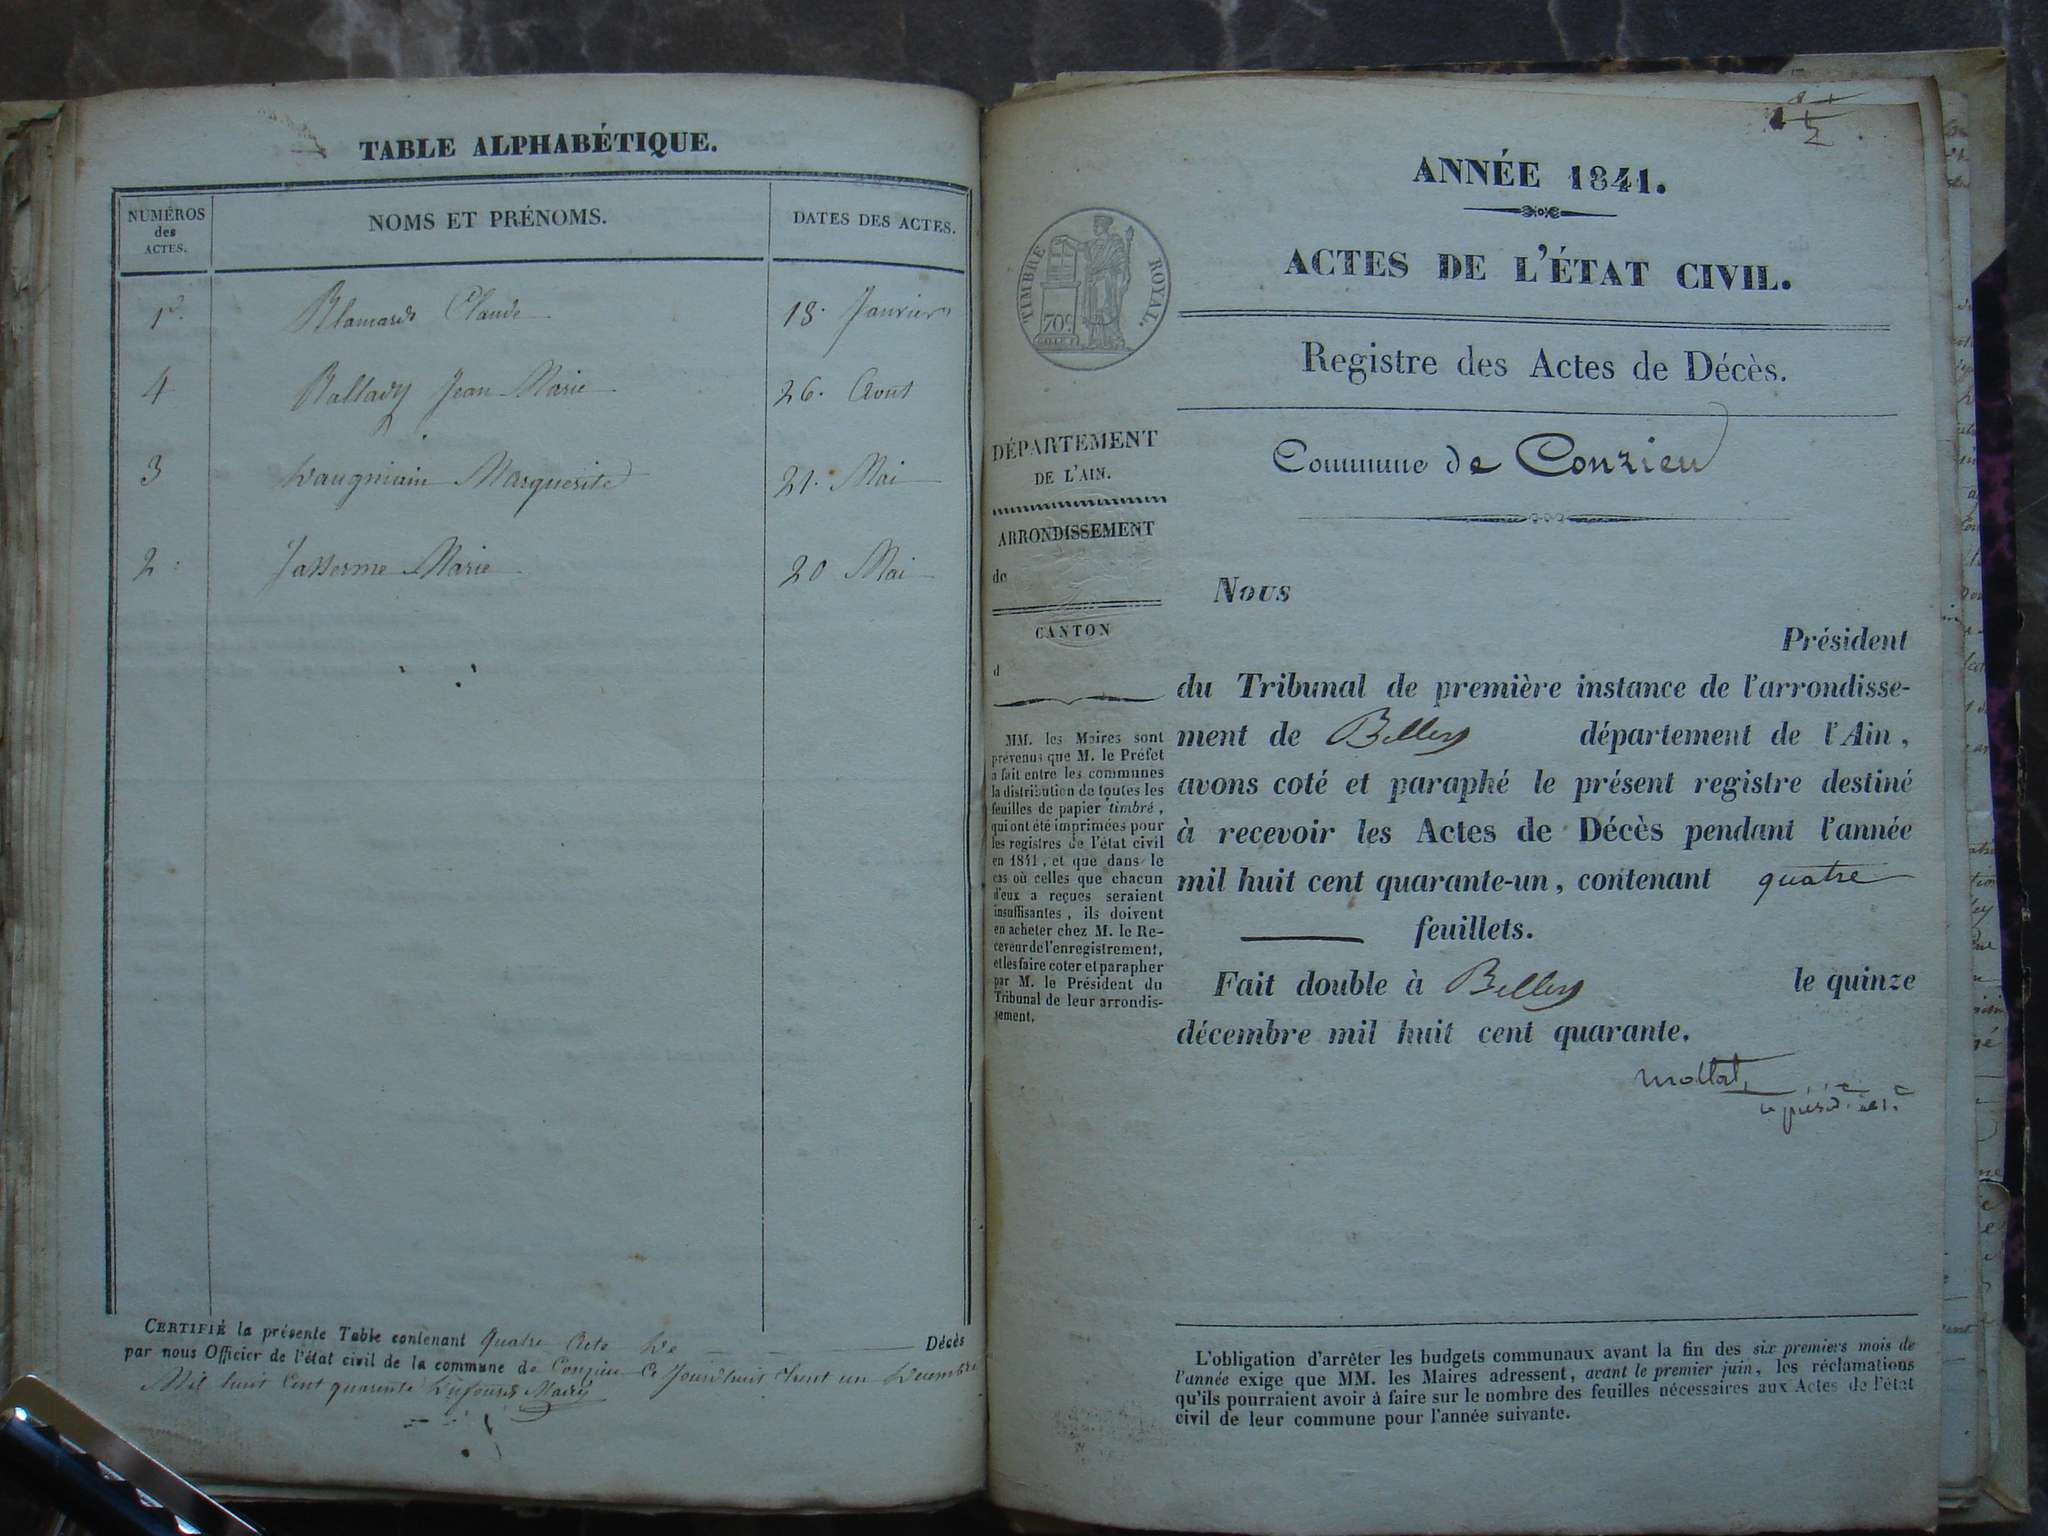 TABLE ALPHABÉTIQUE.
NUMÉROS des ACTES.
NOMS ET PRÉNOMS.
DATES DES ACTES.
1er Blamard Claude 18. Janvier
4 Ballady Jean Marie 26. Aout
3 Daugniain Marguerite 21. Mai
2 Jasserme Marie 20 Mai
CERTIFIÉ la présente Table contenant quatre Acte de Décès
par nous Officier de l'état civil de la commune de Conzieu ce jourdhuit trent un Decembre
Mil huit Cent quarente Dufours Maire
ANNÉE 1841.
ACTES DE L'ÉTAT CIVIL.
TIMBRE ROYAL.
70c
Registre des Actes de Décès.
Commune de Conzieu
DÉPARTEMENT
DE L'AIN.
ARRONDISSEMENT
de
CANTON
d
MM. les Maires sont
prévenus que M. le Préfet
a fait entre les communes
la distribution de toutes les
feuilles de papier timbré,
qui ont été imprimées pour
les registres de l'état civil
en 1841, et que dans le
cas où celles que chacun
d'eux a reçues seraient
insuffisantes, ils doivent
en acheter chez M. le Re-
ceveur de l'enregistrement,
et les faire coter et parapher
par M. le Président du
Tribunal de leur arrondis-
sement.
Nous
Président
du Tribunal de première instance de l'arrondisse-
ment de Belley département de l'Ain,
avons coté et paraphé le présent registre destiné
à recevoir les Actes de Décès pendant l'année
mil huit cent quarante-un, contenant quatre
feuillets.
Fait double à Belley le quinze
décembre mil huit cent quarante.
Mollet
L'obligation d'arrêter les budgets communaux avant la fin des six premiers mois de
l'année exige que MM. les Maires adressent, avant le premier juin, les réclamations
qu'ils pourraient avoir à faire sur le nombre des feuilles nécessaires aux Actes de l'état
civil de leur commune pour l'année suivante.